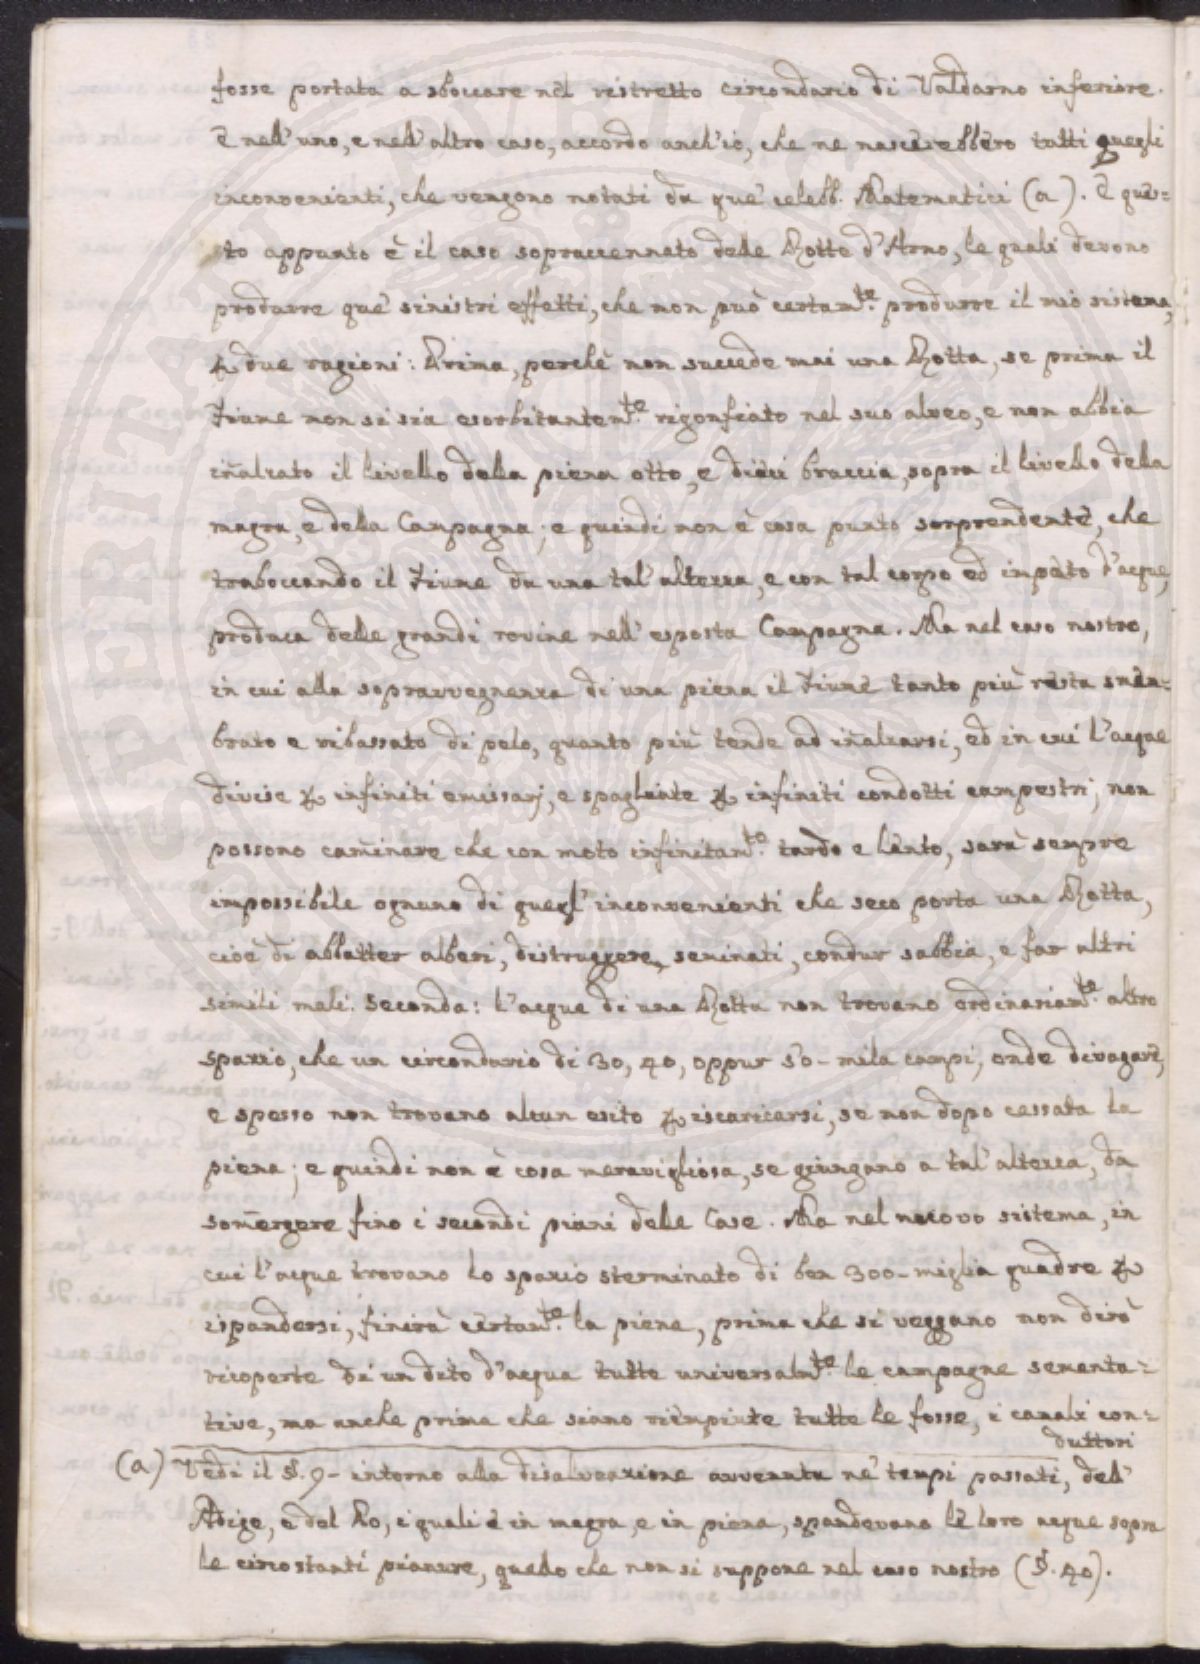 fosse portata a sboccare nel ristretto circondario di Valdarno inferiore.
E nell'uno, e nell'altro caso, accordo anch'io, che ne nascerebbero tutti quegli
inconvenienti, che vengono notati da que' celebb. Matematici (a). E ques=
to appunto è il caso sopraccennato delle Rotte d'Arno, le quali devono
produrre que' sinistri effetti, che non può certam.te produrre il mio sistema,
due ragioni: Prima, perchè non succede mai una Rotta, se prima il
Fiume non si sia esorbitantem.te rigonfiato nel suo alveo, e non abbia
inalzato il livello della piena otto, e dieci braccia, sopra il livello della
magra, e della Campagna; e quindi non è cosa punto sorprendente, che
traboccando il Fiume da una tal'altezza, e con tal corpo ed impeto d'acque,
produca delle grandi rovine nell'esposta Campagna. Ma nel caso nostro,
in cui alla sopravvegnenza di una piena il Fiume tanto più resta smem=
brato e ribassato di pelo, quanto più tende ad inalzarsi, ed in cui l'acque
divise infiniti emissarj, e spagliate infiniti condotti campestri, non
possono caminare che con moto infinitam.te tardo e lento, sarà sempre
impossibile ognuno di quegl'inconvenienti che seco porta una Rotta,
cioè di abbatter alberi, distruggere seminati, condur sabbia, e far altri
simili mali. Seconda: l'acque di una Rotta non trovano ordinariam.te altro
spazio, che un circondario di 30, 40, oppur 50-mila campi, onde divagare,
e spesso non trovano alcun esito iscaricarsi, se non dopo cessata la
piena; e quindi non è cosa meravigliosa, se giungano a tal'altezza, da
somergere fino i secondi piani delle Case. Ma nel nuovo sistema, in
cui l'acque trovano lo spazio sterminato di ben 300-miglia quadre
ispandersi, finirà certam.te la piena, prima che si veggano non dirò
ricoperte di un dito d'acqua tutte universalm.te le campagne sementa=
tive, ma anche prima che siano riempiute tutte le fosse, i canali con=
duttori
(a) Vedi il §. 9- intorno alla disalveazione avvenuta ne' tempi passati, dell'
Adige, e del Po, i quali e in magra, e in piena, spandevano le loro acque sopra
le circostanti pianure, quello che non si suppone nel caso nostro (§. 40).
PROSPERITATI PUBLICAE